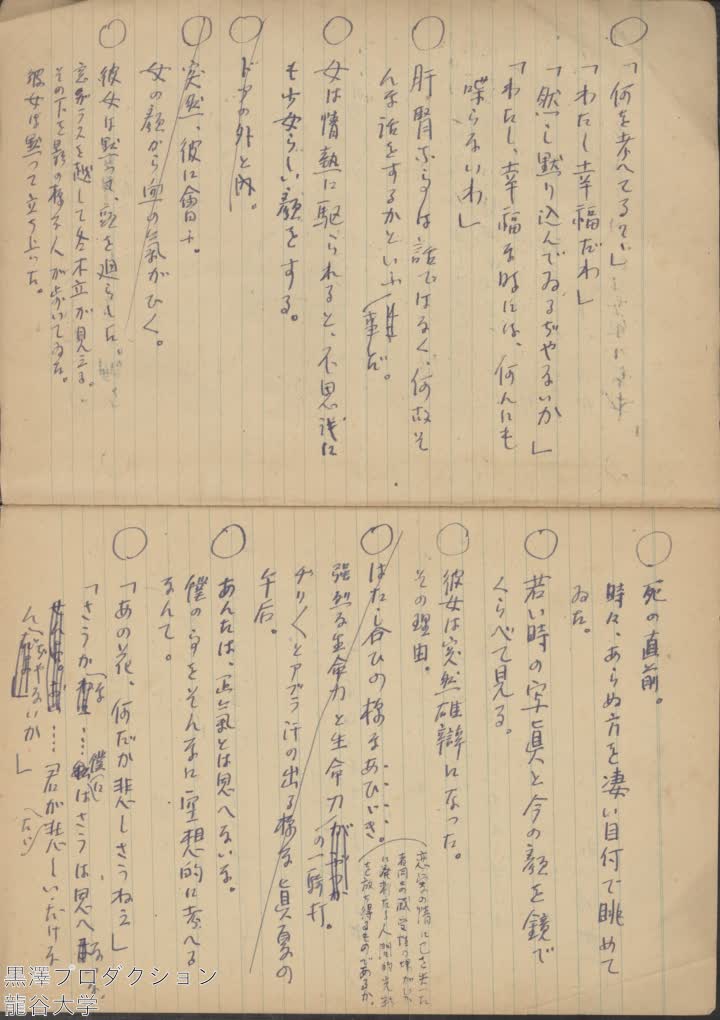 「何を考へてるで」
「わたし幸福だわ」
「然し黙り込んでゐるぢやないか」
「わたし、幸福な時には、何んにも
喋らないわ」
肝腎な事は話ではなく、何故そ
んな話をするかといふ事だ。
女は情熱に駆られると、不思議に
も少女らしい顔をする。
ドアの外と内。
突然、彼に會ふ。
女の顔から血の氣がひく。
彼女は黙って、頭を廻らした。
窓ガラスを越して冬木立が見える。
その下を影の様な人が歩いてゐた。
彼女は黙って立ち上った。
死の直前。
時々、あらぬ方を凄い目付で眺めて
ゐた。
若い時の写真と今の顔を鏡で
くらべて見る。
彼女は突然雄辯になった。
その理由。
はたし合ひの様なあひびき。
強烈な生命力と生命力の一騎打。
ヂリ〱とアブラ汗の出る様な真夏の
午后。
あんたは、正氣とは思へないな。
僕の事をそんなに空想的に考へる
なんて。
「あの花、何だか悲しさうねえ」
「さうかな……僕にはさうは思へな
……君が悲しいだけな
んぢやないか」
黒澤プロダクション
龍谷大学